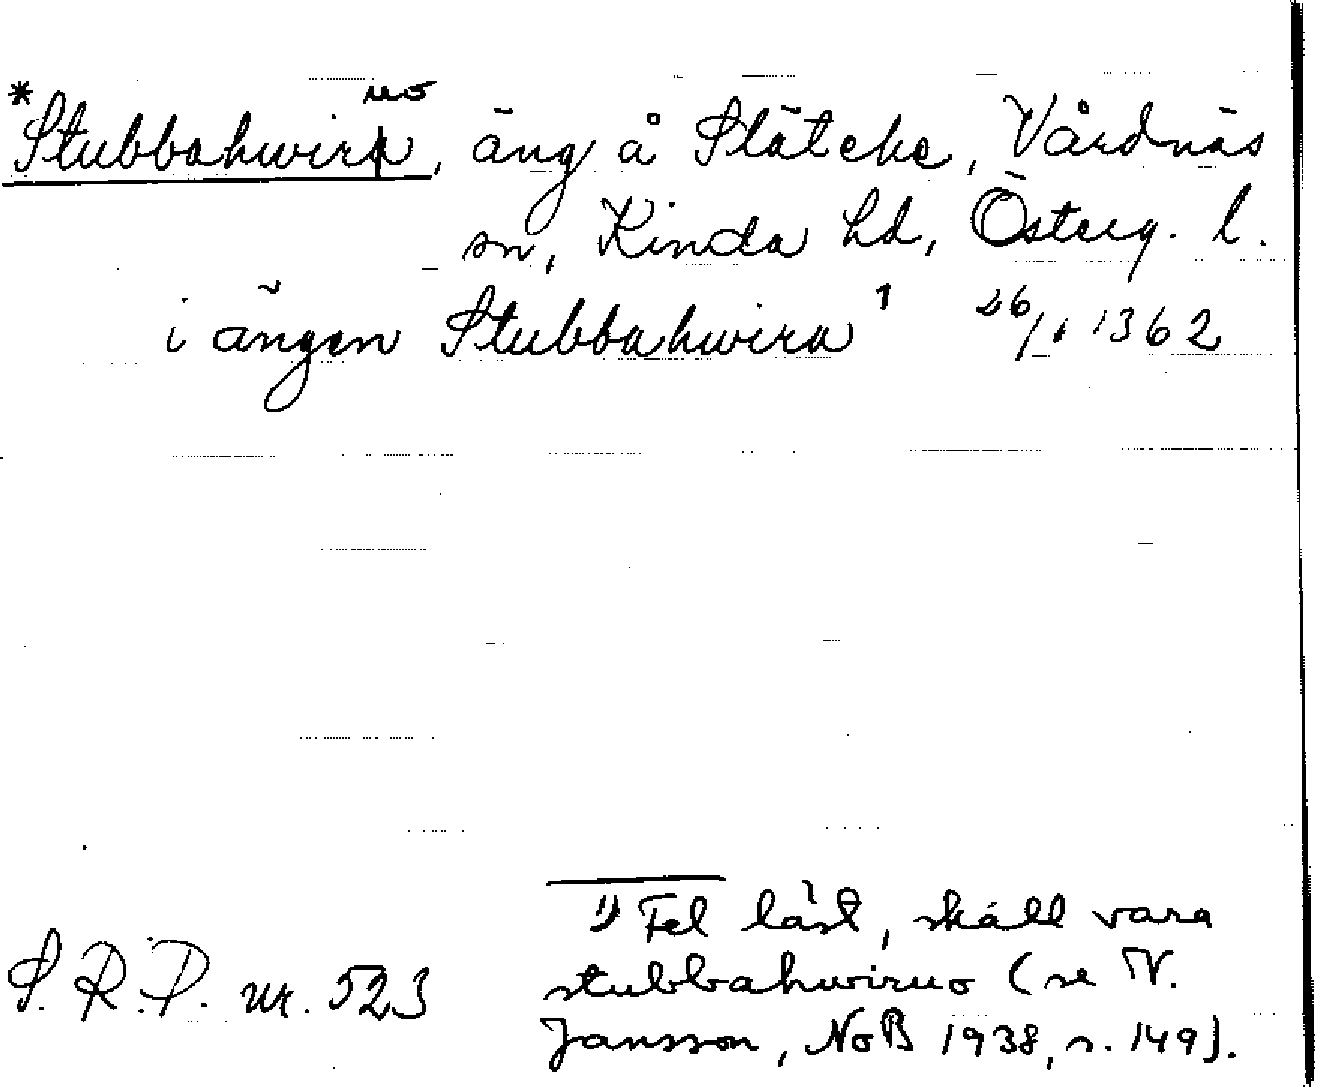 uo
*Stubbahwira, äng å Släteke, Vårdnäs
sn, Kinda hd, Österg. l.
i ängen Stubbahwira ¹ 26/1 1362
1) Fel läst, skall vara
stubbahwiruo (se V.
Jansson, NoB 1938, s. 149).
S. R. P. nr. 523